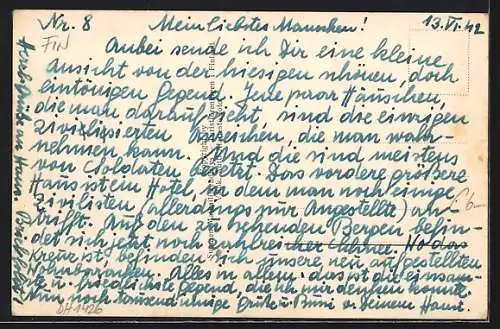 Nr. 8 Mein liebstes Mannchen! 13.VI.42
FIN
Anbei sende ich Dir eine kleine
Ansicht von der hiesigen schönen, doch
eintönigen Gegend. Jene paar Häuschen,
die man darauf sieht, sind die einzigen
Zivilisierten Zeichen, die man wahr-
nehmen kann. Und die sind meistens
von Soldaten besetzt. Das vordere grössere
Haus ist ein Hotel, in dem man noch einige
Zivilisten (allerdings nur Angestellte) an-
trifft. Auf den zu sehenden Bergen befin-
det sich jetzt noch zahlreicher Schnee. Wo das
Kreuz ist befinden sich unsere neu aufgestellten
Wohnbaracken. Alles in allem: das ist die einsam-
ste u. friedlichste Gegend, die ich mir denken konnte.
Nun noch tausend innige Grüße u. Bussi v. Deinem Hansi.
DH1426